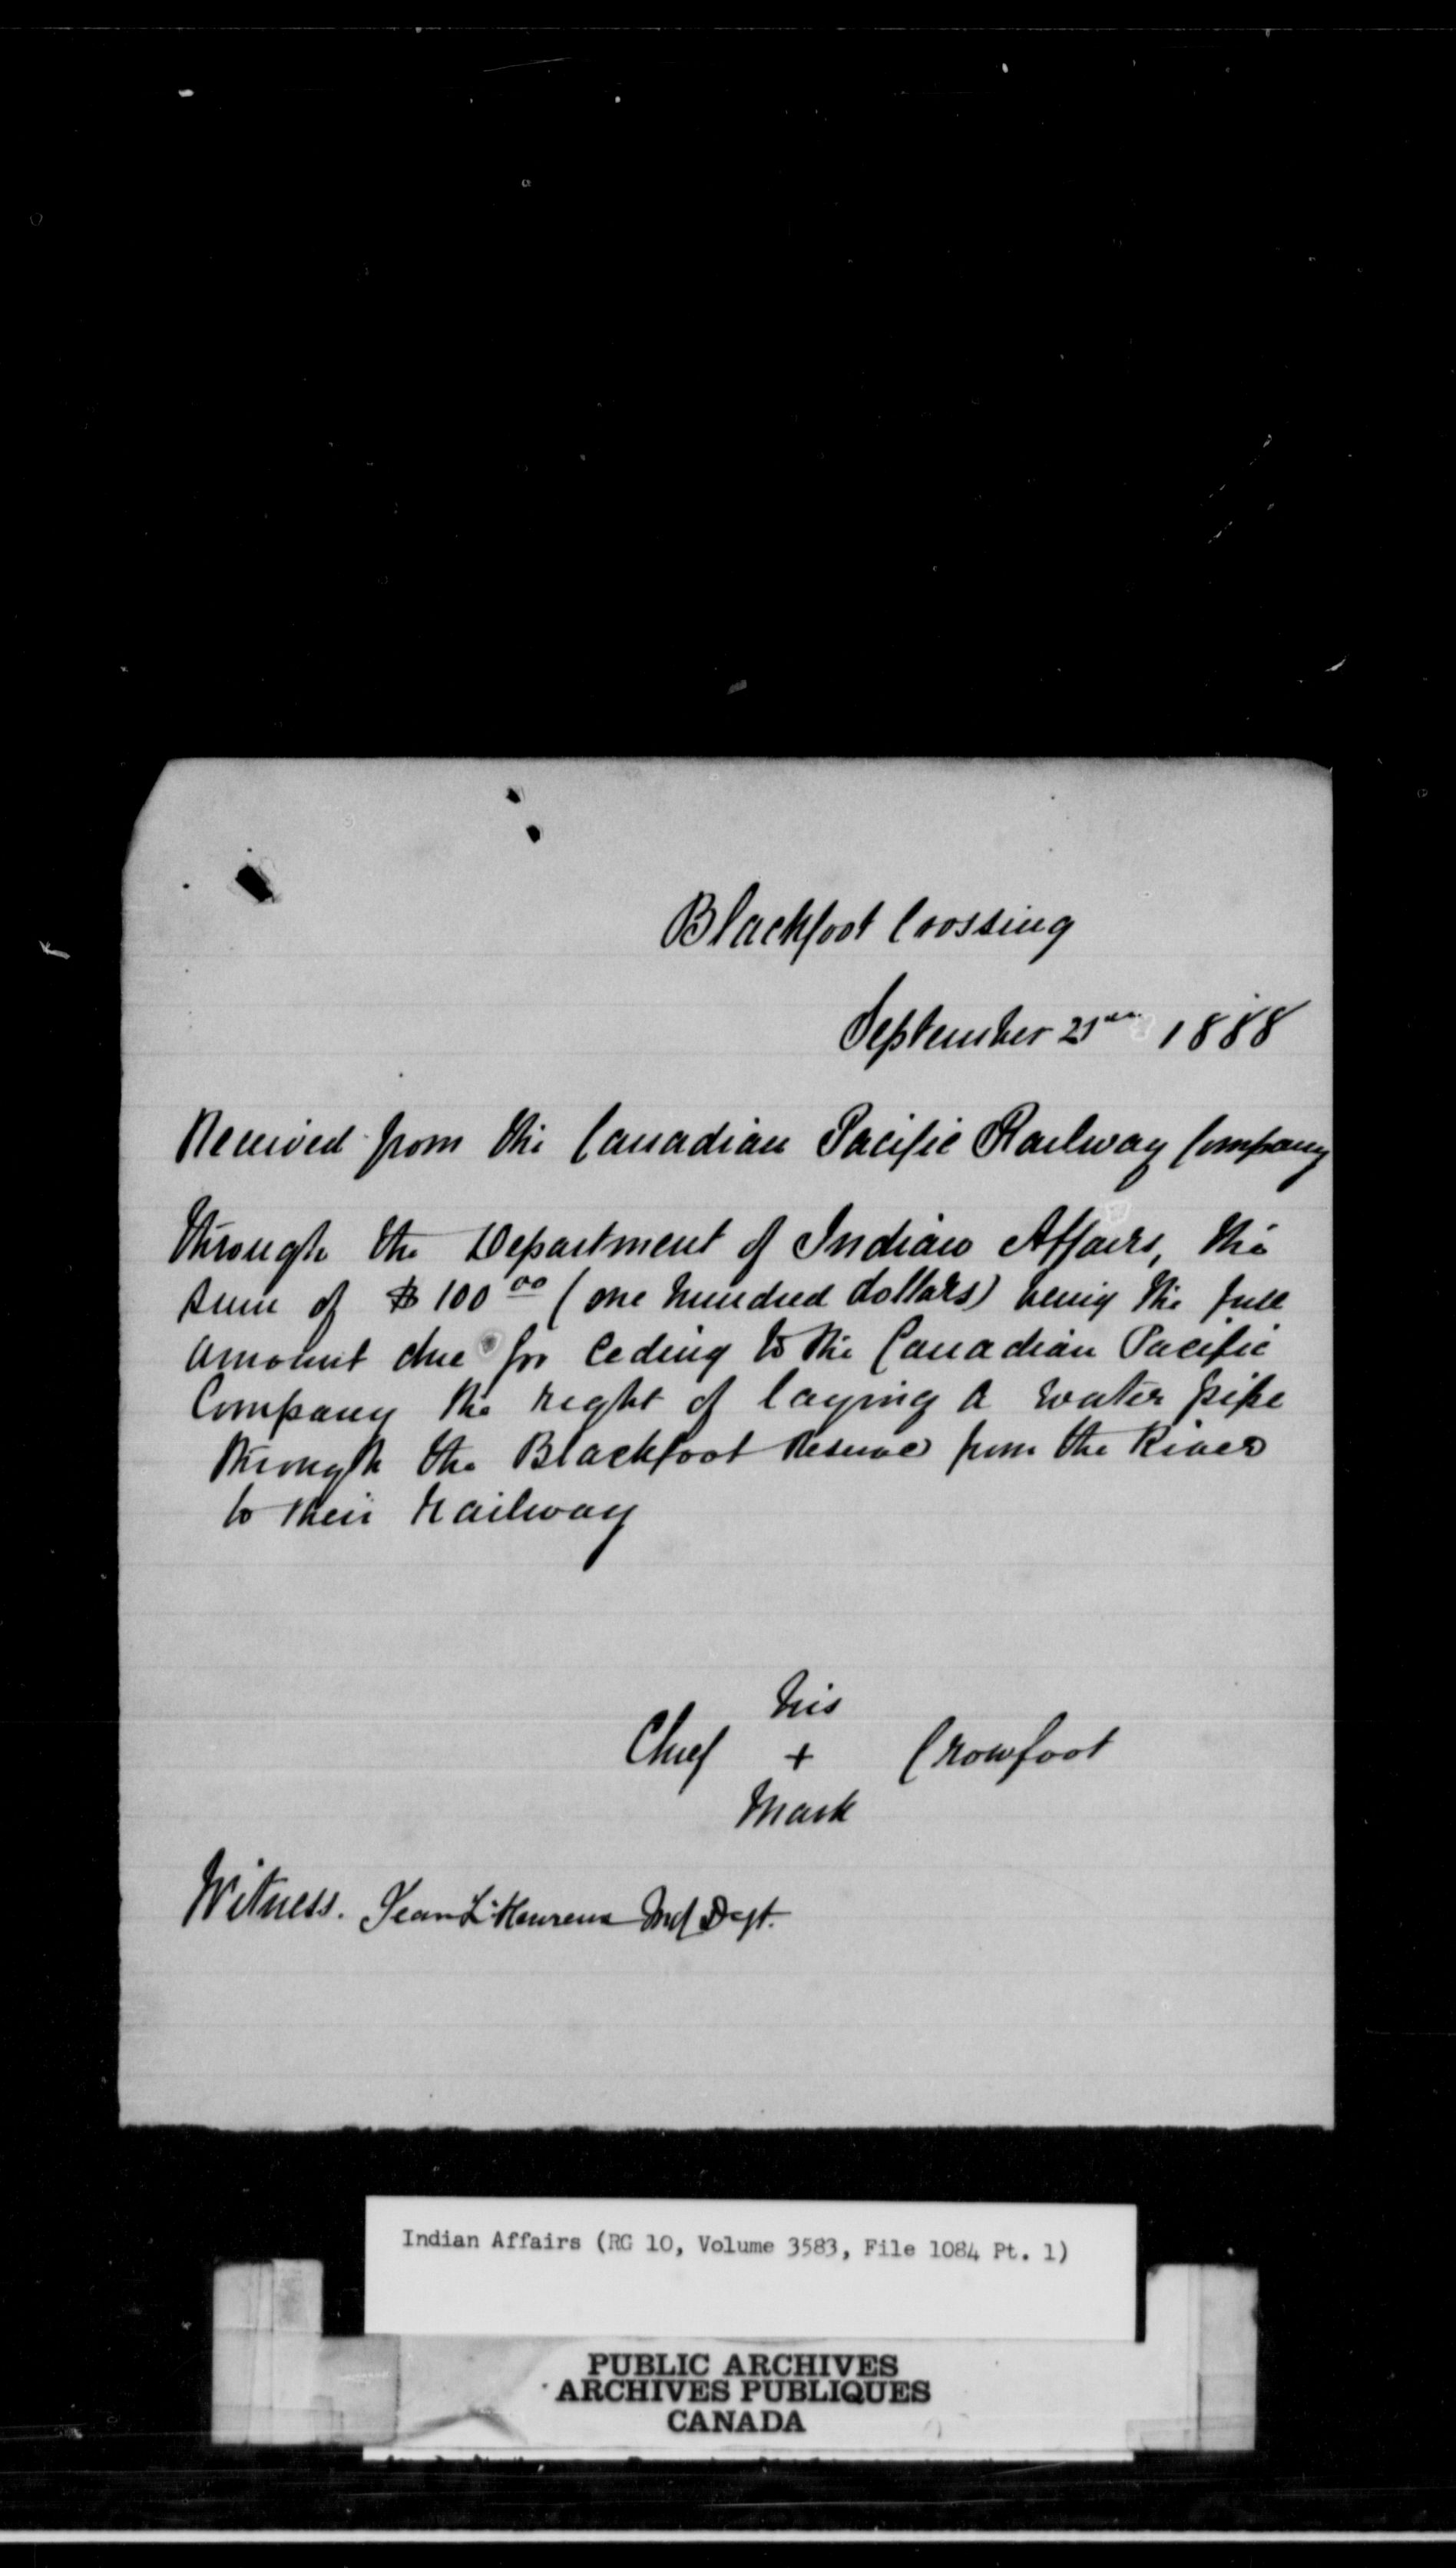 Blackfoot Crossing
September 21st 1888
Received from the Canadian Pacific Railway Company
through the Department of Indian Affairs, the
sum of $100 00 (one hundred dollars) being the full
amount due for ceding to the Canadian Pacific
Company the right of laying a water pipe
through the Blackfoot Reserve from the River
to their Railway
his
Chief + Crowfoot
Mark
Witness. Jean L'Heureux Ind Dept.
Indian Affairs (RG 10, Volume 3583, File 1084 Pt. 1)
PUBLIC ARCHIVES
ARCHIVES PUBLIQUES
CANADA